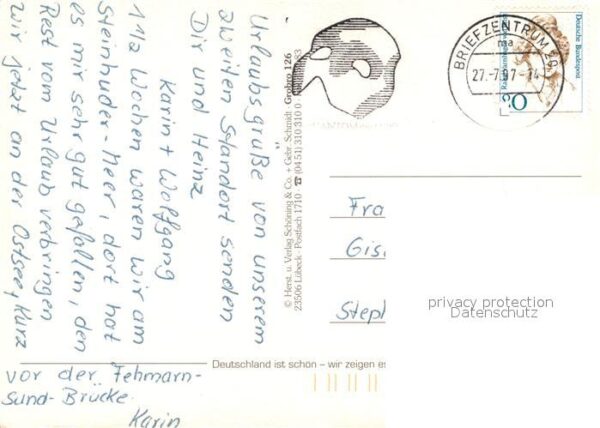 Urlaubsgrüße von unserem
zweiten Standort senden
Dir und Heinz
Karin + Wolfgang
1 1/2 Wochen waren wir am
Steinhuder-Meer, dort hat
es mir sehr gut gefallen, den
Rest vom Urlaub verbringen
wir jetzt an der Ostsee, kurz
vor der Fehmarn-
Sund-Brücke.
Karin
© Herst. u. Verlag Schöning & Co. + Gebr. Schmidt · Grobro 126
23506 Lübeck · Postfach 1710 · ☎ (04 51) 310 310 0
Deutschland ist schön – wir zeigen es
BRIEFZENTRUM
ma
27.-7.97-14
c
Deutsche Bundespost
Fra
Gis
Steph
privacy protection
Datenschutz